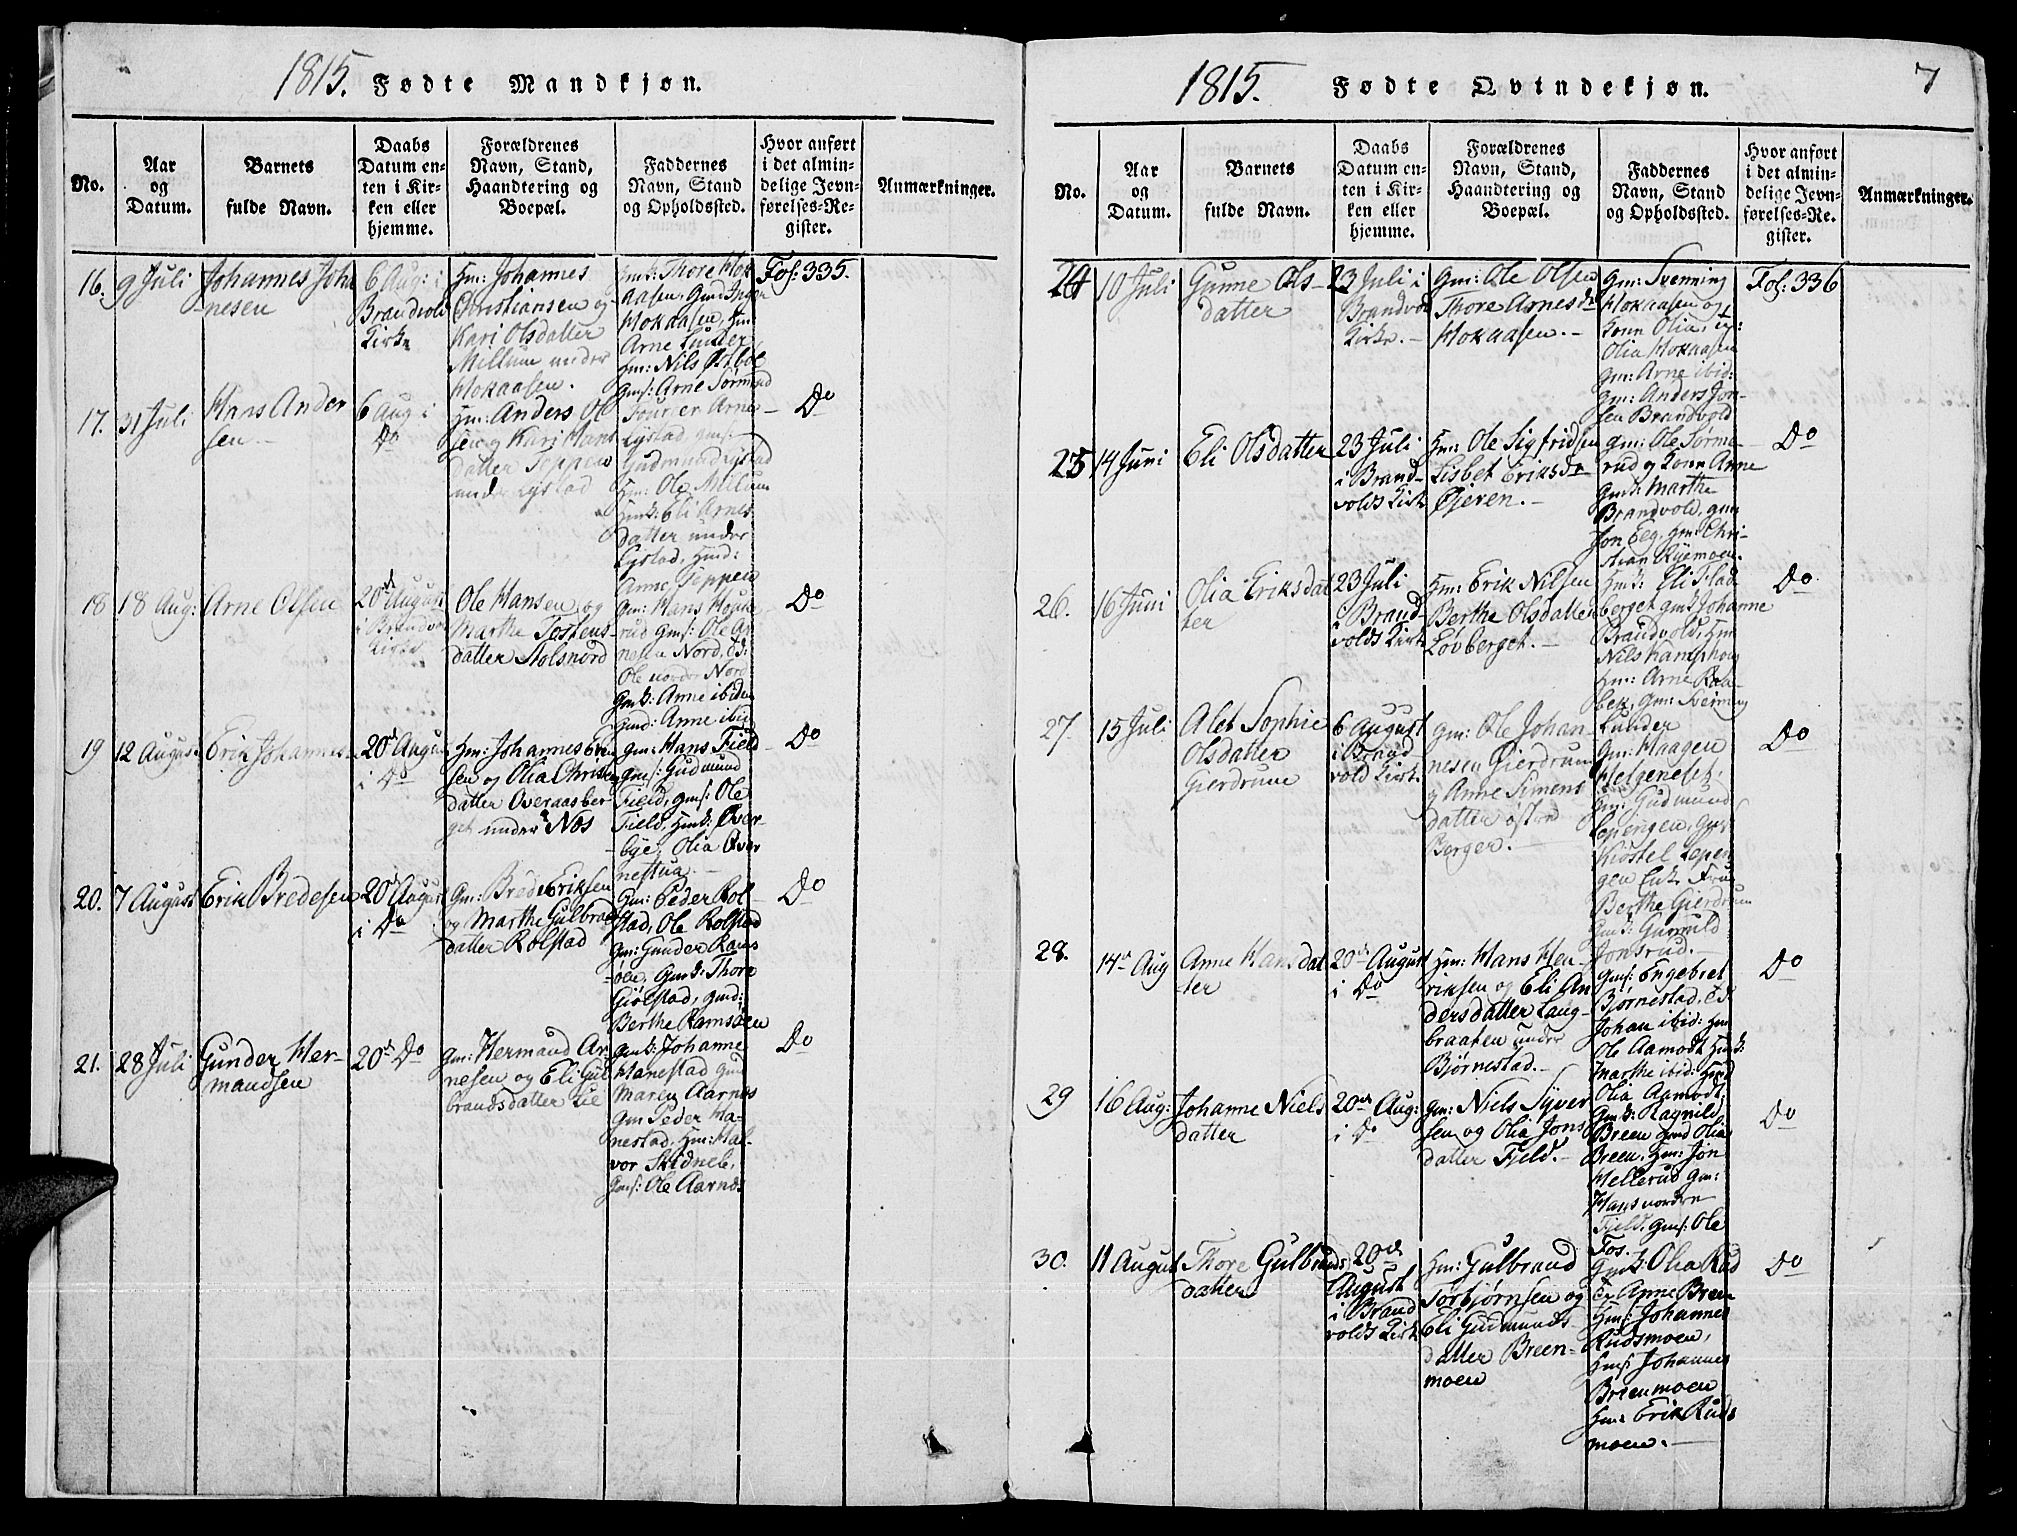 1815. Fødte Mandkjøn.
No.
Aar
og
Datum.
Barnets
fulde Navn.
Daabs
Datum en-
ten i Kir-
ken eller
hjemme.
Forældrenes
Navn, Stand,
Haandtering og
Boepæl.
Faddernes
Navn, Stand
og Opholdssted.
Hvor anført
i det almin-
delige Jevn-
førelses-Re-
gister.
Anmærkninger.
16.
9 Juli
Johannes Joha
nesen
6 Aug: i
Brandvold
Kirke
Hm: Johannes
Christiansen og
Kari Olsdatter
Millum under
Hokaasen.
Gmk: Thore Hok
aasen, Gmd Inger
Hokaasen, Hm
Arne Lunder
Hm: Nils Østbøe
Gmf: Arne Sørmud
Fol: 335.
17.
31 Juli
Hans Ander
sen
6 Aug i
Do
Hm: Anders Ol
sen og Kari Hans
datter Teppen
under Lystad
Arne
Lystad, gmf:
Gudmund Lystad
Hm: Ole Millum
Hmk: Eli Arnes
datter under
Lystad, Hmd:
Anne Teppen
Do
18
18 Aug:
Arne Olsen
20d August
i Brandvo
Kirke
Ole Hansen og
Marthe Tostens
datter Nolsnord
Gm: Hans
rud Gmf: Ole Ar
nesen Nord,
Ole nordre Nord
Gmk: Anne ibiden
Gmd: Anne ibid
Do
19
12 August
Erik Johannes
20d Augu
i Do
Hm: Johannes
sen og Olia Christ
datter Overaasber
get under Næs
Gm: Hans Field
Gmf: Gudmund
Field, Gmf: Ole
Field, Hmk: Over
bye, Olia Over
nestua
Do
20.
7 August
Erik Bredesen
20d August
i Do
Gm: Brede Eriksen
og Marthe Gulbran
datter Rolstad
Gm: Peder Rol
stad, Ole Rolstad
Gm: Gunder Rams
øen, Gmk: Thore
Giølstad, Gmd:
Berthe Ramsøen
Do
21.
28 Juli
Gunder Her-
mandsen
20d Do
Gm: Hermand Ar
nesen og Eli Gul
brandsdatter Lie
Gmk: Johanne
Hanestad Gmd
Maren Aarnes
Gm Peder Ha-
nestad, Hm: Hal
vor Skidneb,
Gmf: Ole Aarnes
Do
1815. Fødte Qvindekjøn.
7
No.
Aar
og
Datum.
Barnets
fulde Navn.
Daabs
Datum en-
ten i Kir-
ken eller
hjemme.
Forældrenes
Navn, Stand,
Haandtering og
Boepæl.
Faddernes
Navn, Stand
og Opholdssted.
Hvor anført
i det almin-
delige Jevn-
førelses-Re-
gister.
Anmærkninger.
24
10 Juli
Gunne Ols-
datter
23 Juli i
Brandvold
Kirke.
Gm: Ole Olsen
Thore Arnesdr
Hokaasen.
Gm: Svenning
Hokaasen og
Konn Olia,
Olia Hokaasen
Gm: Arne ibid:
Gm: Anders Jon-
sen Brandvold
Fol: 336
25
14 Juni
Eli Olsdatter
23 Juli
i Brand-
volds Kirk
Hm: Ole Sigfridsen
Lisbet Eriksdr
Øieren.
Gm: Ole Sørme-
rud og Konn Anne
Gmk: Marthe
Brandvold, Gm
Jon Eeg, Hm: Chri-
stian Ryemoen.
Do
26.
16 Juni
Olia Eriksdat
ter
23 Juli
i Brand-
volds Kirk
Hm: Erik Nilsen
Berthe Olsdatter
Løvberget.
Hmk: Eli Flad
berget Gmk Johanne
Brandvold, Hm
Nils Kamphoug
Hm: Arne Raa-
bek, Gm: Svenning
Lunder
Do
27.
15 Juli
Alet Sophie
Olsdatter
Gierdrum
6 August
i Brand
vold Kirk.
Gm: Ole Johan
nesen Gierdrum
og Anne Simens
datter østre
Berger.
Gm: Haagen
Helgeneset,
Gm: Gudmund
Lepengen,
Kiøstel Lepen
gen Enke Frue
Berthe Gierdrum
Gmk: Gunnild
Jonsrud.
Do
28.
14d Aug
Anne Hansdat
ter
20d August
i Do
Hm: Hans Hen
riksen og Eli An
dersdatter Laug-
braaten under
Bjørnestad.
Gmf: Engebret
Bjørnestad,
Johan ibid: Hm
Ole Aamodt Hmk:
Marthe ibid: Gmd
Olia Aamodt
Do
29
16 Aug:
Johanne Niels
datter
20d Aug:
i Do
Gm: Niels Syver
sen og Olia Jons
datter Fjeld.
Gmk: Ragnild
Breen Gmd Olia
Breen, Hm: Jon
Hellerud Gm:
Hans nordre
Fjeld, Gmf: Ole
Fos.
Do
30.
11 August
Thore Gulbrands
datter
20d
August
i Brand
volds Kirk
Hm: Gulbrand
Torbjørnsen og
Eli Gudmunds
datter Breen-
moen
Gmk: Olia Rud
og Anne Breen
Hmf: Johannes
Rudsmoen,
Hmf: Johannes
Breenmoen
Hm: Erik Ruds
moen.
Do